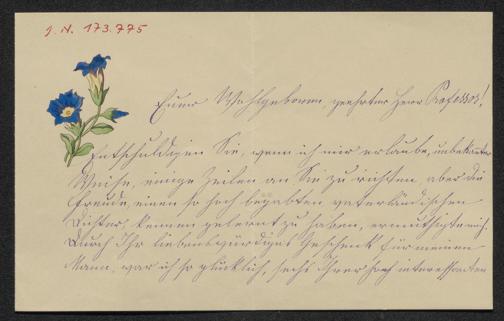 J. N. 173.775
Euer Wohlgeboren, geehrter Herr Professor!
Entschuldigen Sie, wenn ich mir erlaube, unbekannter
Weise, einige Zeilen an Sie zu richten, aber die
Freude, einen so hoch begabten vaterländischen
Dichter, kennen gelernt zu haben, ermuthigte mich.
Durch Ihr liebenswürdiges Geschenk für meinen
Mann, war ich so glücklich, sechs Ihrer hoch interessanten